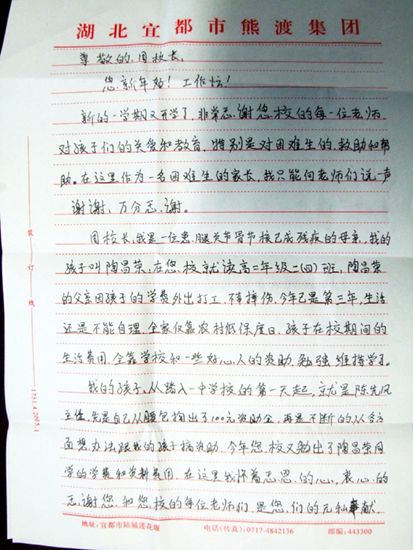 湖北宜都市熊渡集团
尊敬的周校长,
您新年好!工作忙!
新的一学期又开学了,非常感谢您校的每一位老师
对孩子们的关爱和教育,特别是对困难生的救助和帮
助。在这里作为一名困难生的家长,我只能向老师们说一声
谢谢,万分感谢。
周校长,我是一位患腿关节骨节核已成残疾的母亲,我的
孩子叫陶昌荣,在您校就读高二年级二(四)班,陶昌荣
的父亲因孩子的学费外出打工,不幸摔伤,今年已是第三年,生活
还是不能自理,全家仅靠农村低保度日,孩子在校期间的
生活费用,全靠学校和一些好心人的资助,勉强维持学习。
我的孩子,从踏入一中学校的第一天起,就是陈先风
主任,先是自己从腰包掏出了100元资助金,再是不断的从多方
面想办法跟我的孩子搞资助,今年您校又免出了陶昌荣同
学的学费和学杂费用,在这里我怀着感恩的心,衷心的
感谢您和您校的每位老师们,是您们的无私奉献,
装
订
线
1731.4.2005.1
地址:宜都市陆城莲花堰 电话(传真):0717-4842136 邮编:443300